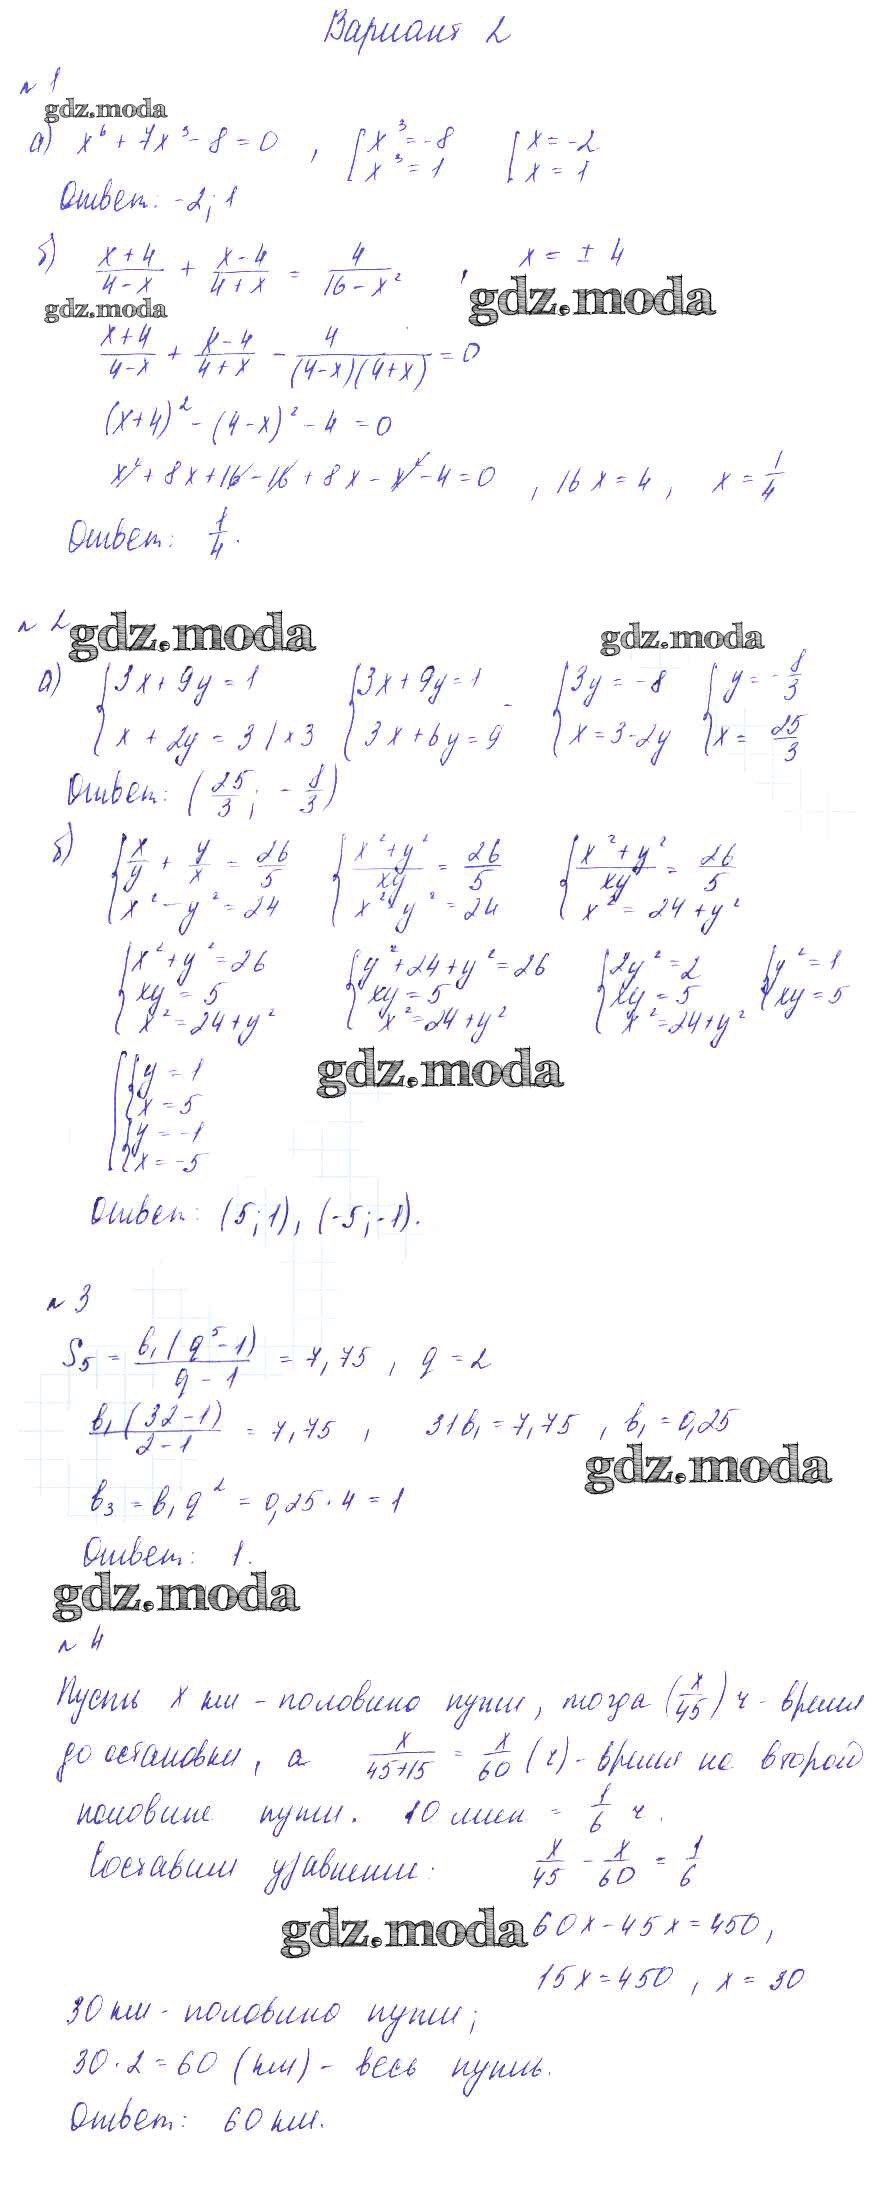 Вариант 2
№ 1
gdz.moda
а) x⁶ + 7x³ - 8 = 0 , [ x³ = -8 [ x = -2
x³ = 1 x = 1
Ответ: -2; 1
б) (x+4)/(4-x) + (x-4)/(4+x) = 4/(16-x²) , x = ± 4
gdz.moda gdz.moda
(x+4)/(4-x) + (x-4)/(4+x) - 4/((4-x)(4+x)) = 0
(x+4)² - (4-x)² - 4 = 0
x² + 8x + 16 - 16 + 8x - x² - 4 = 0 , 16x = 4 , x = 1/4
Ответ: 1/4.
№ 2 gdz.moda gdz.moda
а) { 3x + 9y = 1 { 3x + 9y = 1 - { 3y = -8 { y = -8/3
x + 2y = 3 | ×3 3x + 6y = 9 x = 3-2y x = 25/3
Ответ: (25/3; -8/3)
б) { x/y + y/x = 26/5 { (x²+y²)/xy = 26/5 { (x²+y²)/xy = 26/5
x² - y² = 24 x² - y² = 24 x² = 24 + y²
{ x² + y² = 26 { y² + 24 + y² = 26 { 2y² = 2 { y² = 1
xy = 5 xy = 5 xy = 5 xy = 5
x² = 24 + y² x² = 24 + y² x² = 24 + y²
[ { y = 1
x = 5
gdz.moda
{ y = -1
x = -5
Ответ: (5; 1), (-5; -1).
№ 3
S₅ = b₁(q⁵-1)/(q-1) = 7,75 , q = 2
b₁(32-1)/(2-1) = 7,75 , 31b₁ = 7,75 , b₁ = 0,25
gdz.moda
b₃ = b₁q² = 0,25 · 4 = 1
Ответ: 1.
gdz.moda
№ 4
Пусть x км - половина пути, тогда (x/45) ч - время
до остановки, а x/(45+15) = x/60 (ч) - время на второй
половине пути. 10 мин = 1/6 ч.
Составим уравнение: x/45 - x/60 = 1/6
gdz.moda 60x - 45x = 450,
15x = 450 , x = 30
30 км - половина пути;
30 · 2 = 60 (км) - весь путь.
Ответ: 60 км.